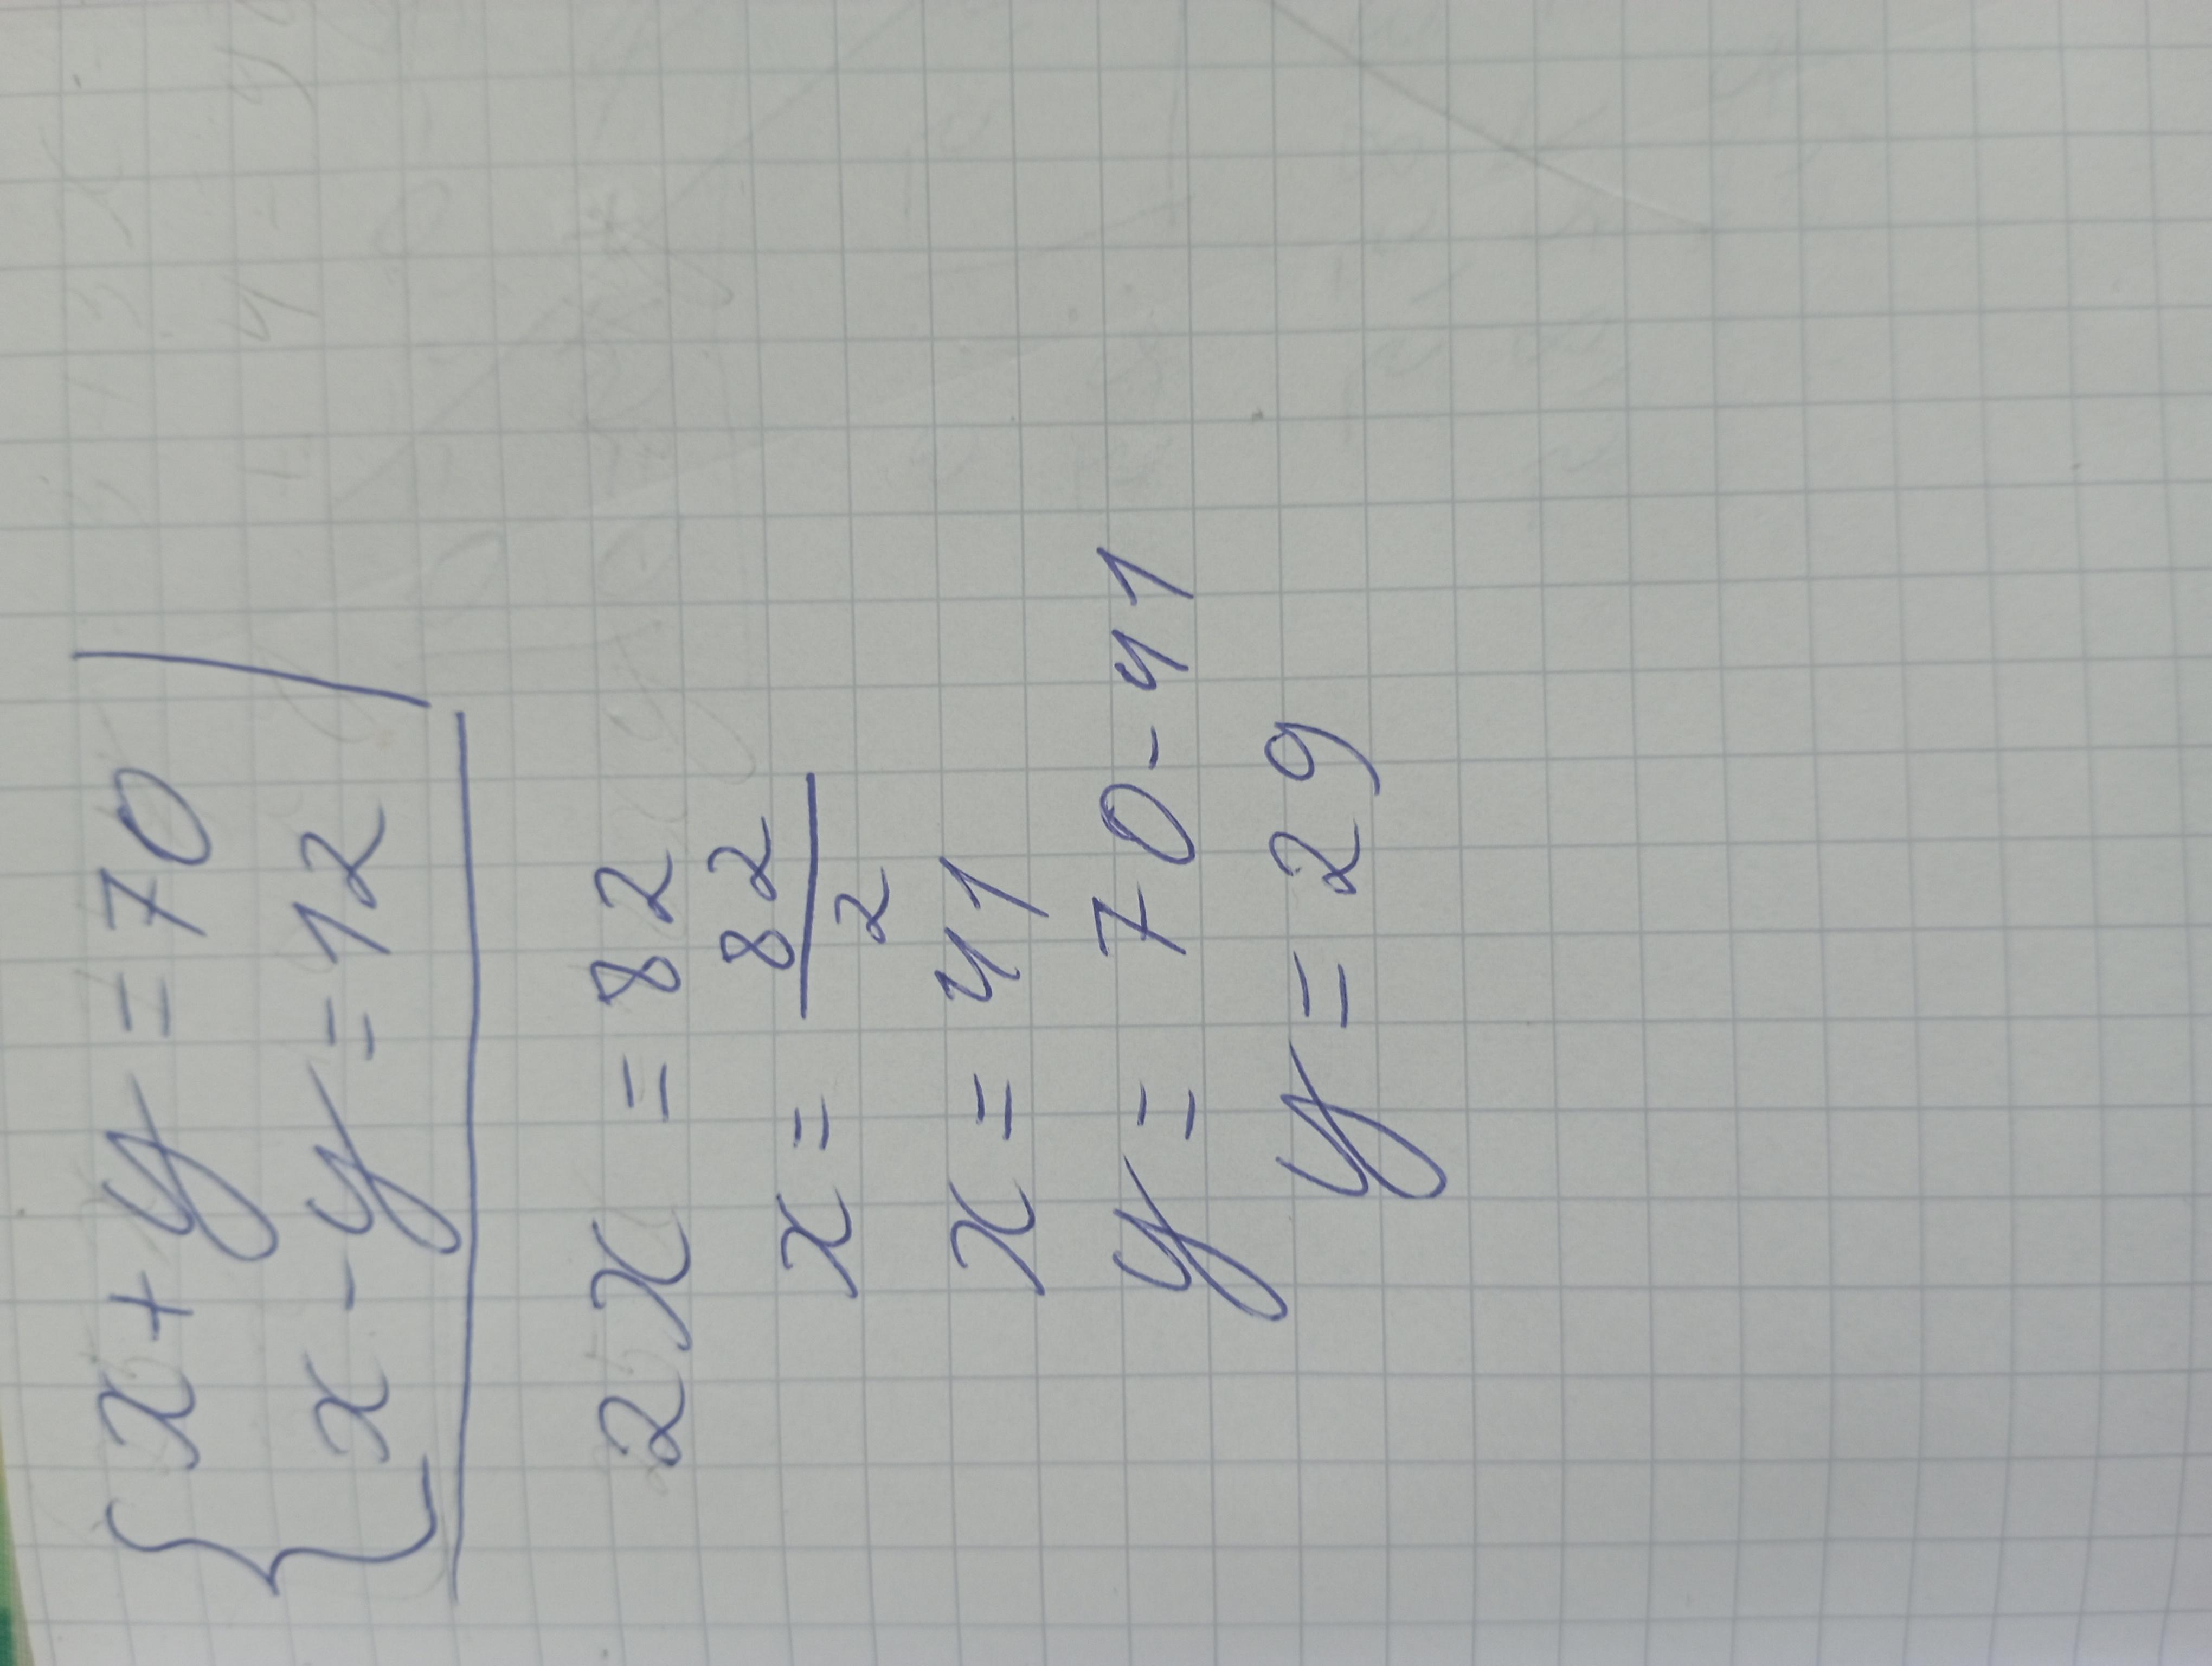 { x + y = 70 |
x - y = 12
2x = 82
x = 82/2
x = 41
y = 70 - 41
y = 29